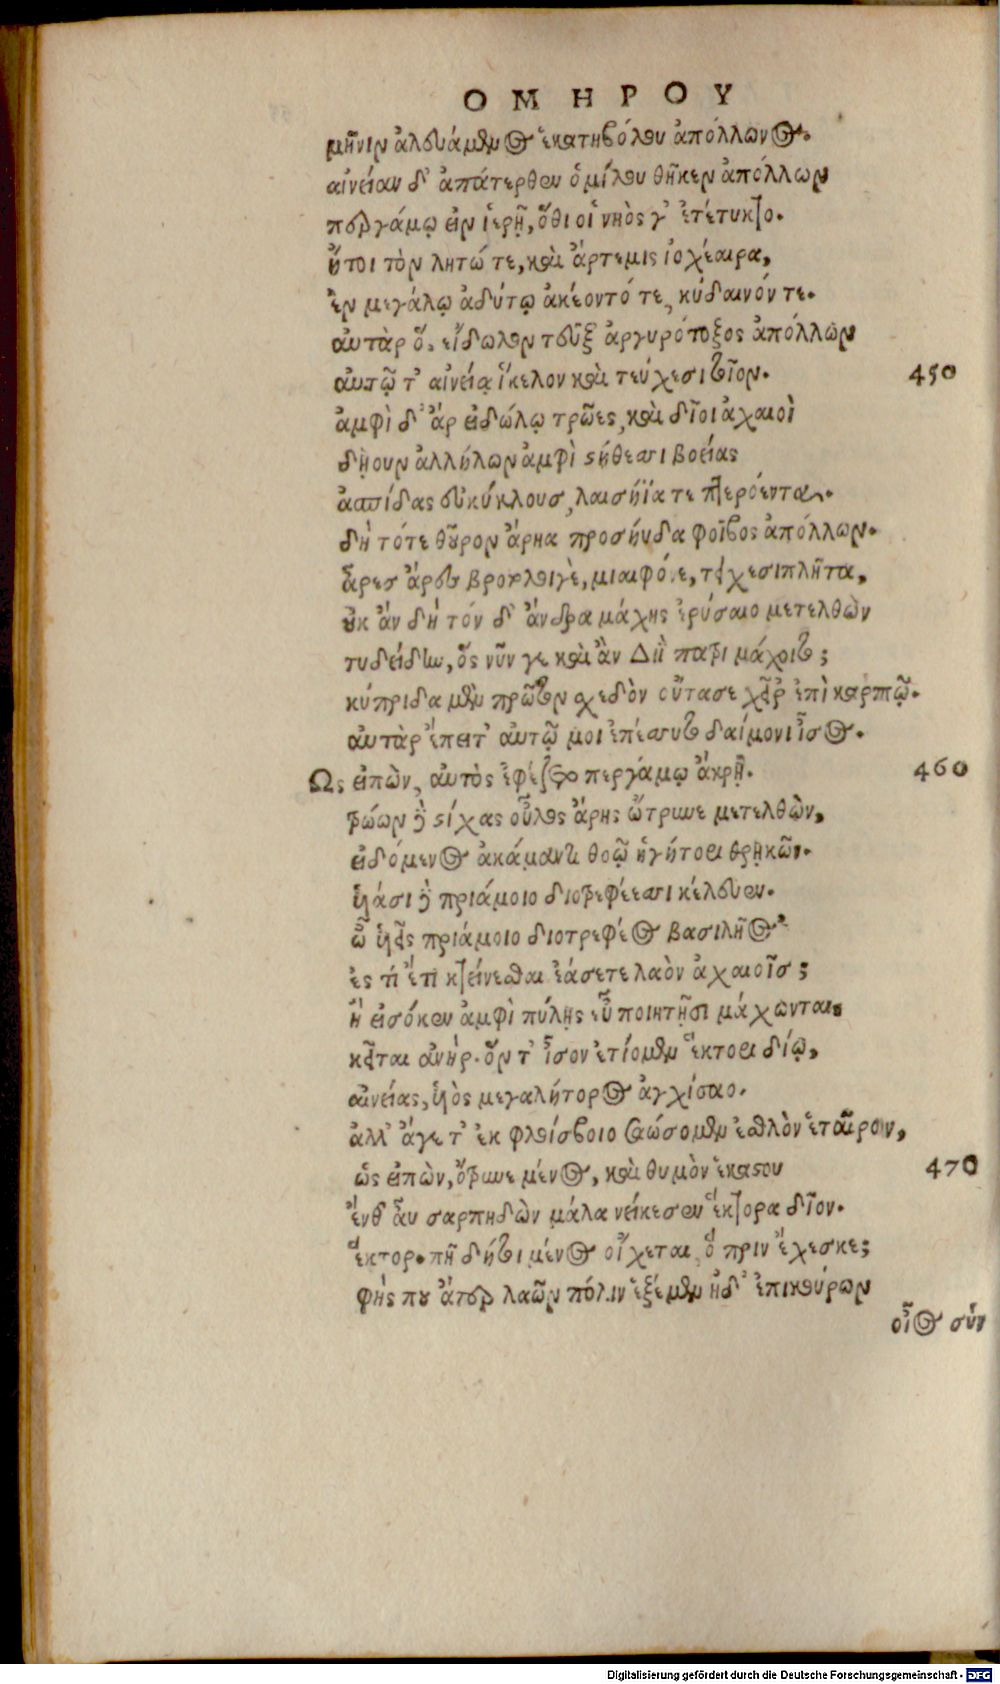 ΟΜΗΡΟΥ
μῆνιν ἀλευάμενος ἑκατηβόλου ἀπόλλωνος.
αἰνείαν δ' ἀπάτερθεν ὁμίλου θῆκεν ἀπόλλων
περγάμῳ εἰν ἱερῇ, ὅθι οἱ νηὸς γ' ἐτέτυκτο.
ἤτοι τὸν λητώ τε, καὶ ἄρτεμις ἰοχέαιρα,
ἐν μεγάλῳ ἀδύτῳ ἀκέοντό τε, κύδαινόν τε.
αὐτὰρ ὅ, εἴδωλον τεῦξ ἀργυρότοξος ἀπόλλων
αὐτῷ τ' αἰνείᾳ ἴκελον καὶ τεύχεσι τοῖον. 450
ἀμφὶ δ' ἄρ εἰδώλῳ τρῶες, καὶ δῖοι ἀχαιοὶ
δῄουν ἀλλήλων ἀμφὶ στήθεσσι βοείας
ἀσπίδας εὐκύκλους, λαισήϊα τε πτερόεντα.
δὴ τότε θοῦρον ἄρηα προσηύδα φοῖβος ἀπόλλων.
ἆρες ἄρες βροτολοιγὲ, μιαιφόνε, τειχεσιπλῆτα,
οὐκ ἂν δὴ τόν δ' ἄνδρα μάχης ἐρύσαιο μετελθὼν
τυδείδην, ὃς νῦν γε καὶ ἂν Διῒ πατρὶ μάχοιτο;
κύπριδα μὲν πρῶτον σχεδὸν οὔτασε χεῖρ ἐπὶ καρπῷ.
αὐτὰρ ἔπειτ' αὐτῷ μοι ἐπέσσυτο δαίμονι ἶσος.
Ὣς εἰπὼν, αὐτὸς ἐφέζετο περγάμῳ ἄκρῃ. 460
τρώων δὲ στίχας οὖλος ἄρης ὤτρυνε μετελθὼν,
εἰδόμενος ἀκάμαντι θοῷ ἡγήτορι θρῃκῶν.
ὑιάσι δὲ πριάμοιο διοτρεφέεσσι κέλευεν.
ὦ ὑιεῖς πριάμοιο διοτρεφέος βασιλῆος
ἐς τί ἔτι κτείνεσθαι ἐάσετε λαὸν ἀχαιοῖς;
ἢ εἰσόκεν ἀμφὶ πύλῃς εὖ ποιητῇσι μάχωνται;
κεῖται ἀνήρ. ὅν τ' ἶσον ἐτίομεν ἕκτορι δίῳ,
αἰνείας, ὑιὸς μεγαλήτορος ἀγχίσαο.
ἀλλ' ἄγε τ' ἐκ φλοίσβοιο σαώσομεν ἐσθλὸν ἑταῖρον,
ὣς εἰπὼν, ὄτρυνε μένος, καὶ θυμὸν ἑκάστου 470
ἔνθ' αὖ σαρπηδὼν μάλα νείκεσεν ἕκτορα δῖον.
ἕκτορ. πῆ δή τοι μένος οἴχεται, ὃ πριν ἔχεσκε;
φῆς που ἄτερ λαῶν πόλιν ἑξέμεν ἠδ' ἐπικούρων
οἶος σὺν
Digitalisierung gefördert durch die Deutsche Forschungsgemeinschaft - DFG